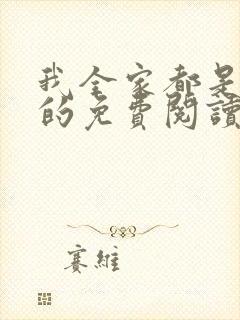 我全家都是
的免費閱讀
賽維